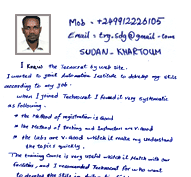 Mob = +249912226105
Email = trg.sdg@gmail.com
SUDAN - KHARTOUM
I know the Technocrat by web site.
I wanted to joint Automation Institute to develop my skills
according to my job.
when I joined Technocrat I found it very systematic
as following.
* the Method of registration is Good
* the Method of testing and Instructors are v.Good
* the Labs are v.Good which it make my understand
the topics quickly.
The training Course is very useful which it Match with our
facilities, and I recommended Technocrat for who want
to develop the skills in